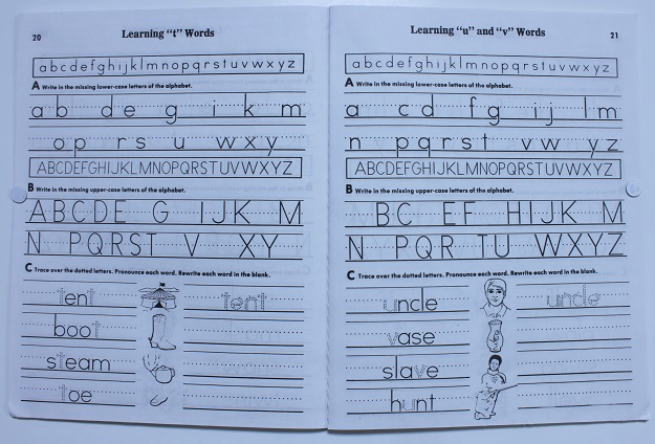 20
Learning "t" Words
a b c d e f g h i j k l m n o p q r s t u v w x y z
A Write in the missing lower-case letters of the alphabet.
a b d e g i k m
o p r s u w x y
ABCDEFGHIJKLMNOPQRSTUVWXYZ
B Write in the missing upper-case letters of the alphabet.
A B C D E G I J K M
N P Q R S T V X Y
C Trace over the dotted letters. Pronounce each word. Rewrite each word in the blank.
tent tent
boot
steam
toe
Learning "u" and "v" Words
21
a b c d e f g h i j k l m n o p q r s t u v w x y z
A Write in the missing lower-case letters of the alphabet.
a c d f g i j l m
n p q r s t v w y z
ABCDEFGHIJKLMNOPQRSTUVWXYZ
B Write in the missing upper-case letters of the alphabet.
B C E F H I J K M
N P Q R T U W X Y Z
C Trace over the dotted letters. Pronounce each word. Rewrite each word in the blank.
uncle uncle
vase
slave
hunt